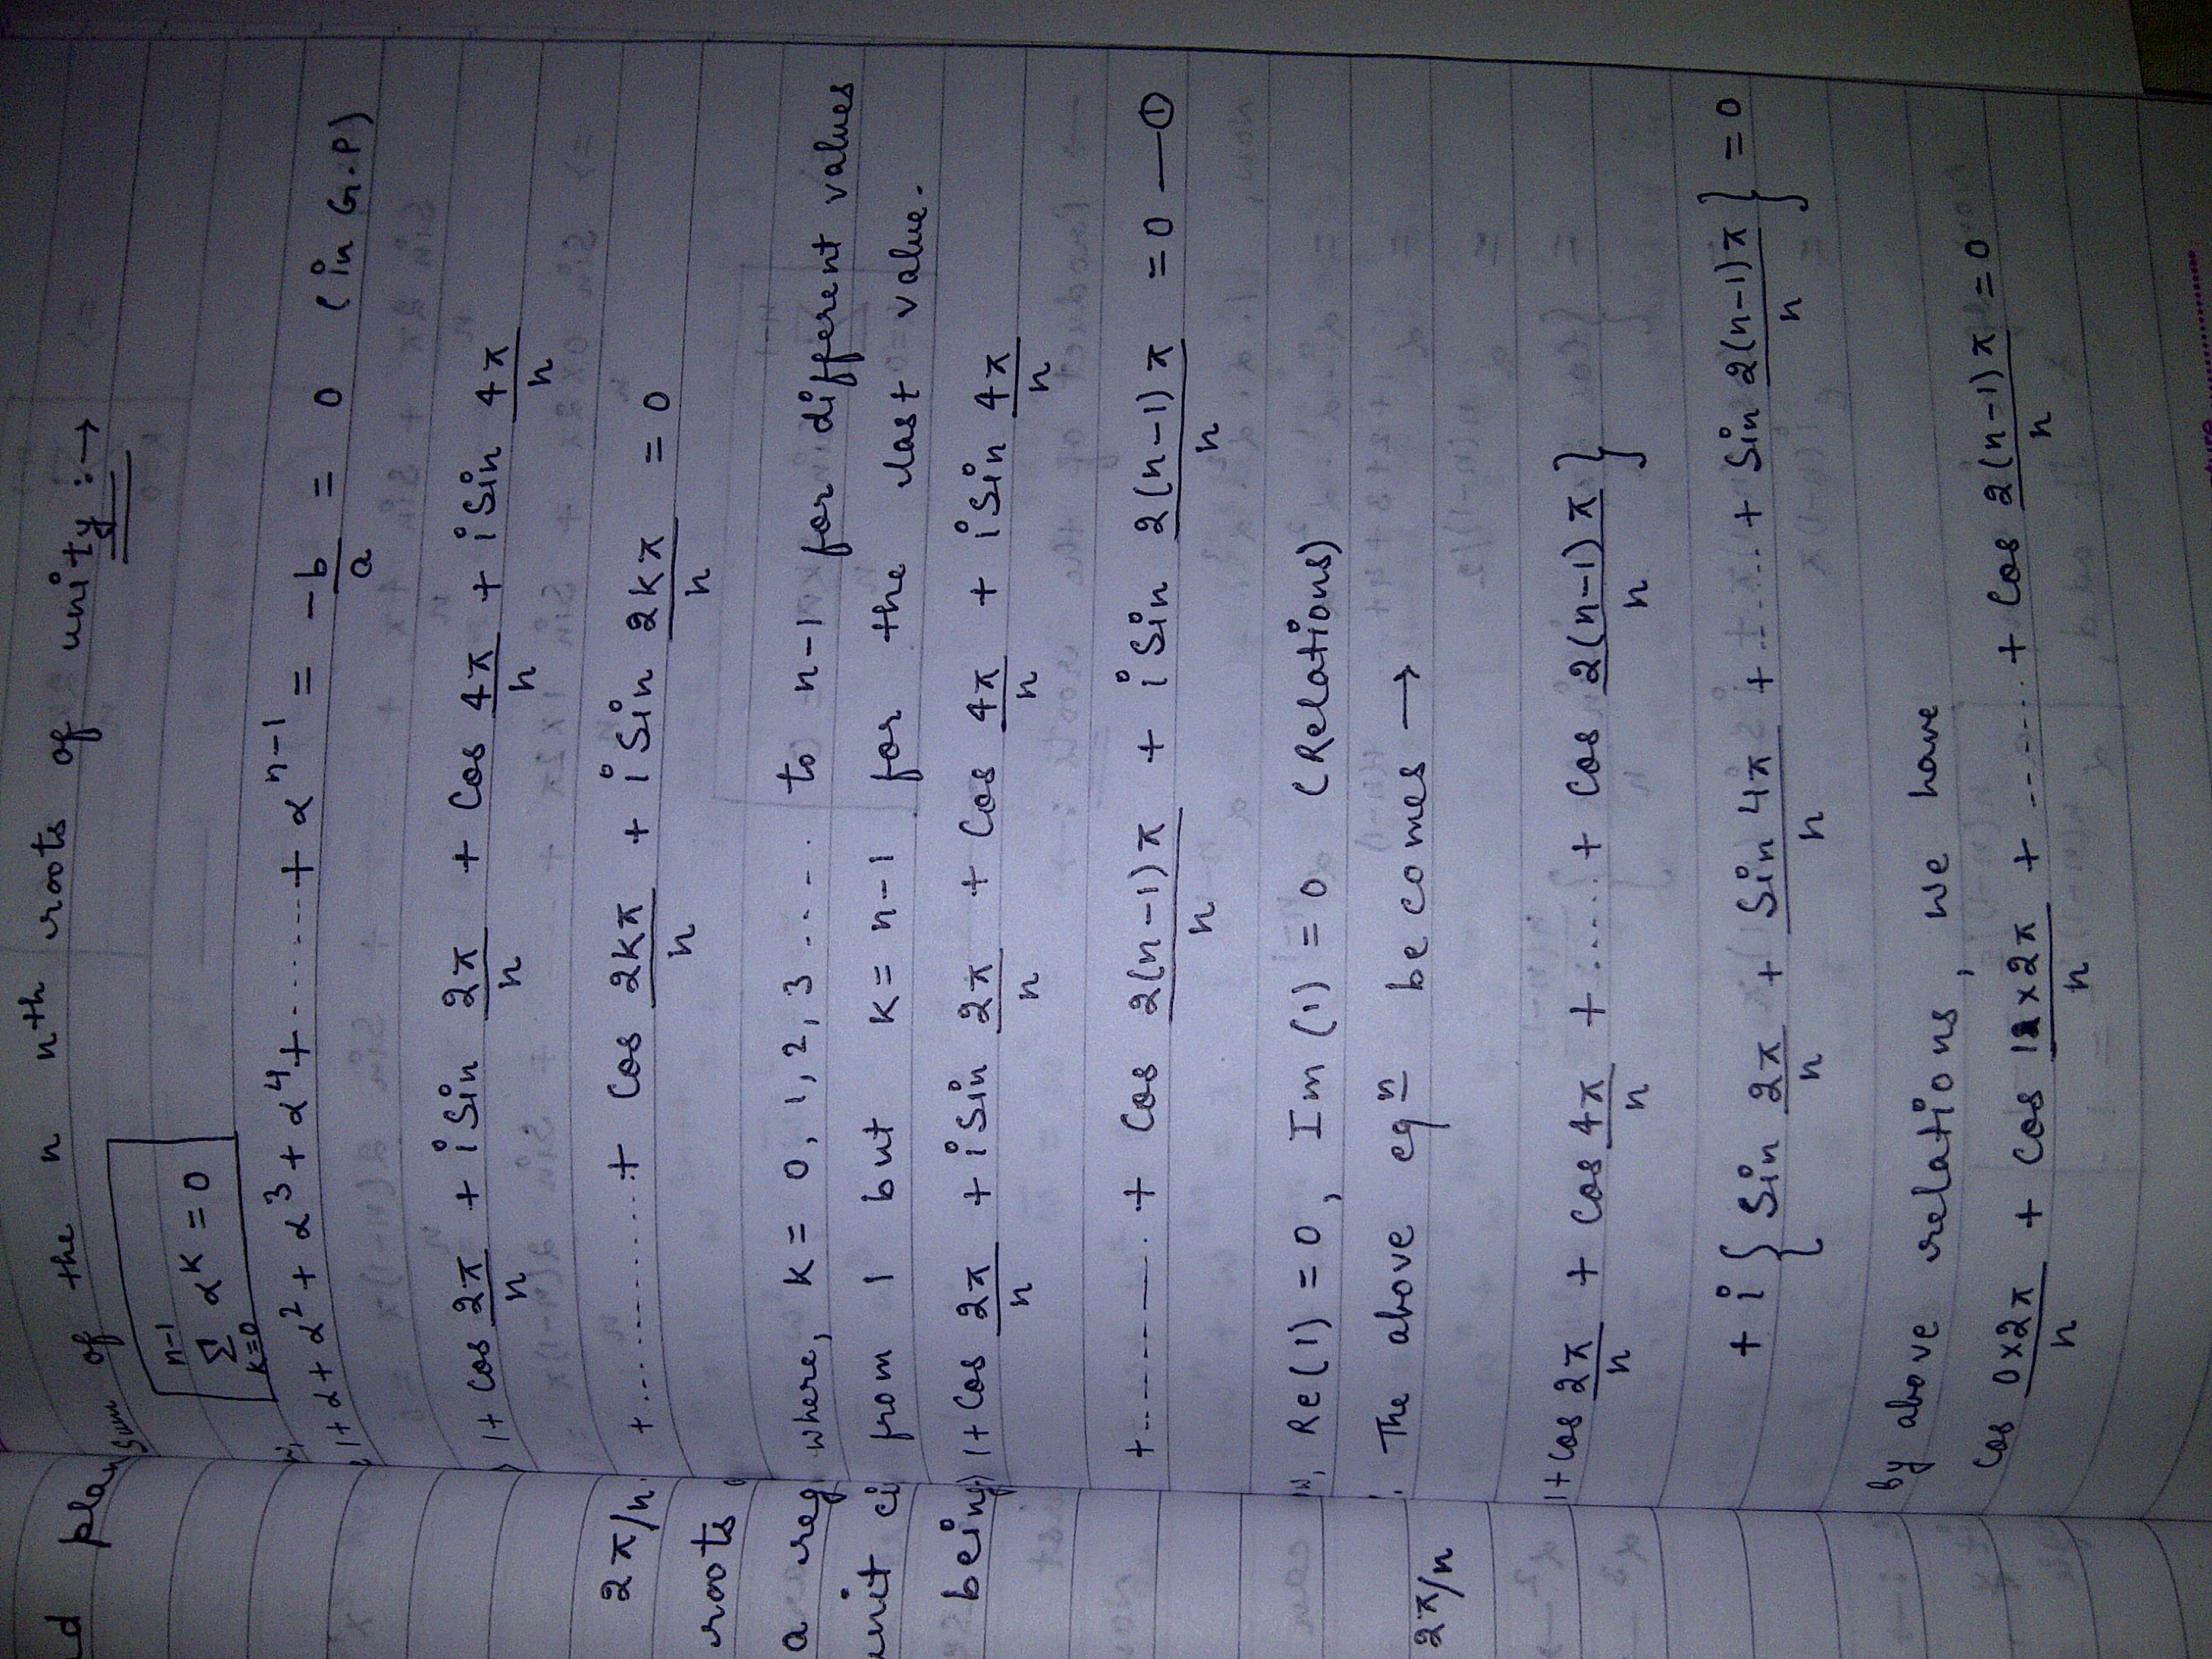 d plan
2π/n
roots
a reg
unit ci
being
2π/n
Sum of the n nth roots of unity :→
n-1
Σ α^K = 0
K=0
1+α+α² + α³ + α⁴+ ....... + α^(n-1) = -b/a = 0 (in G.P)
1+ Cos 2π/n + i Sin 2π/n + Cos 4π/n + i Sin 4π/n
+ ............ + Cos 2Kπ/n + i Sin 2Kπ/n = 0
where, K = 0, 1, 2, 3 ..... to n-1 for different values
from 1 but K = n-1 for the last value.
1+ Cos 2π/n + i Sin 2π/n + Cos 4π/n + i Sin 4π/n
+ ......... + Cos 2(n-1)π/n + i Sin 2(n-1)π/n = 0 — ①
Re(1) = 0, Im(1) = 0 (Relations)
The above eqn becomes →
1+ Cos 2π/n + Cos 4π/n + ..... + Cos 2(n-1)π/n }
+ i { Sin 2π/n + Sin 4π/n + ...... + Sin 2(n-1)π/n } = 0
By above relations, we have
Cos 0×2π/n + Cos 1×2π/n + ....... + Cos 2(n-1)π/n = 0